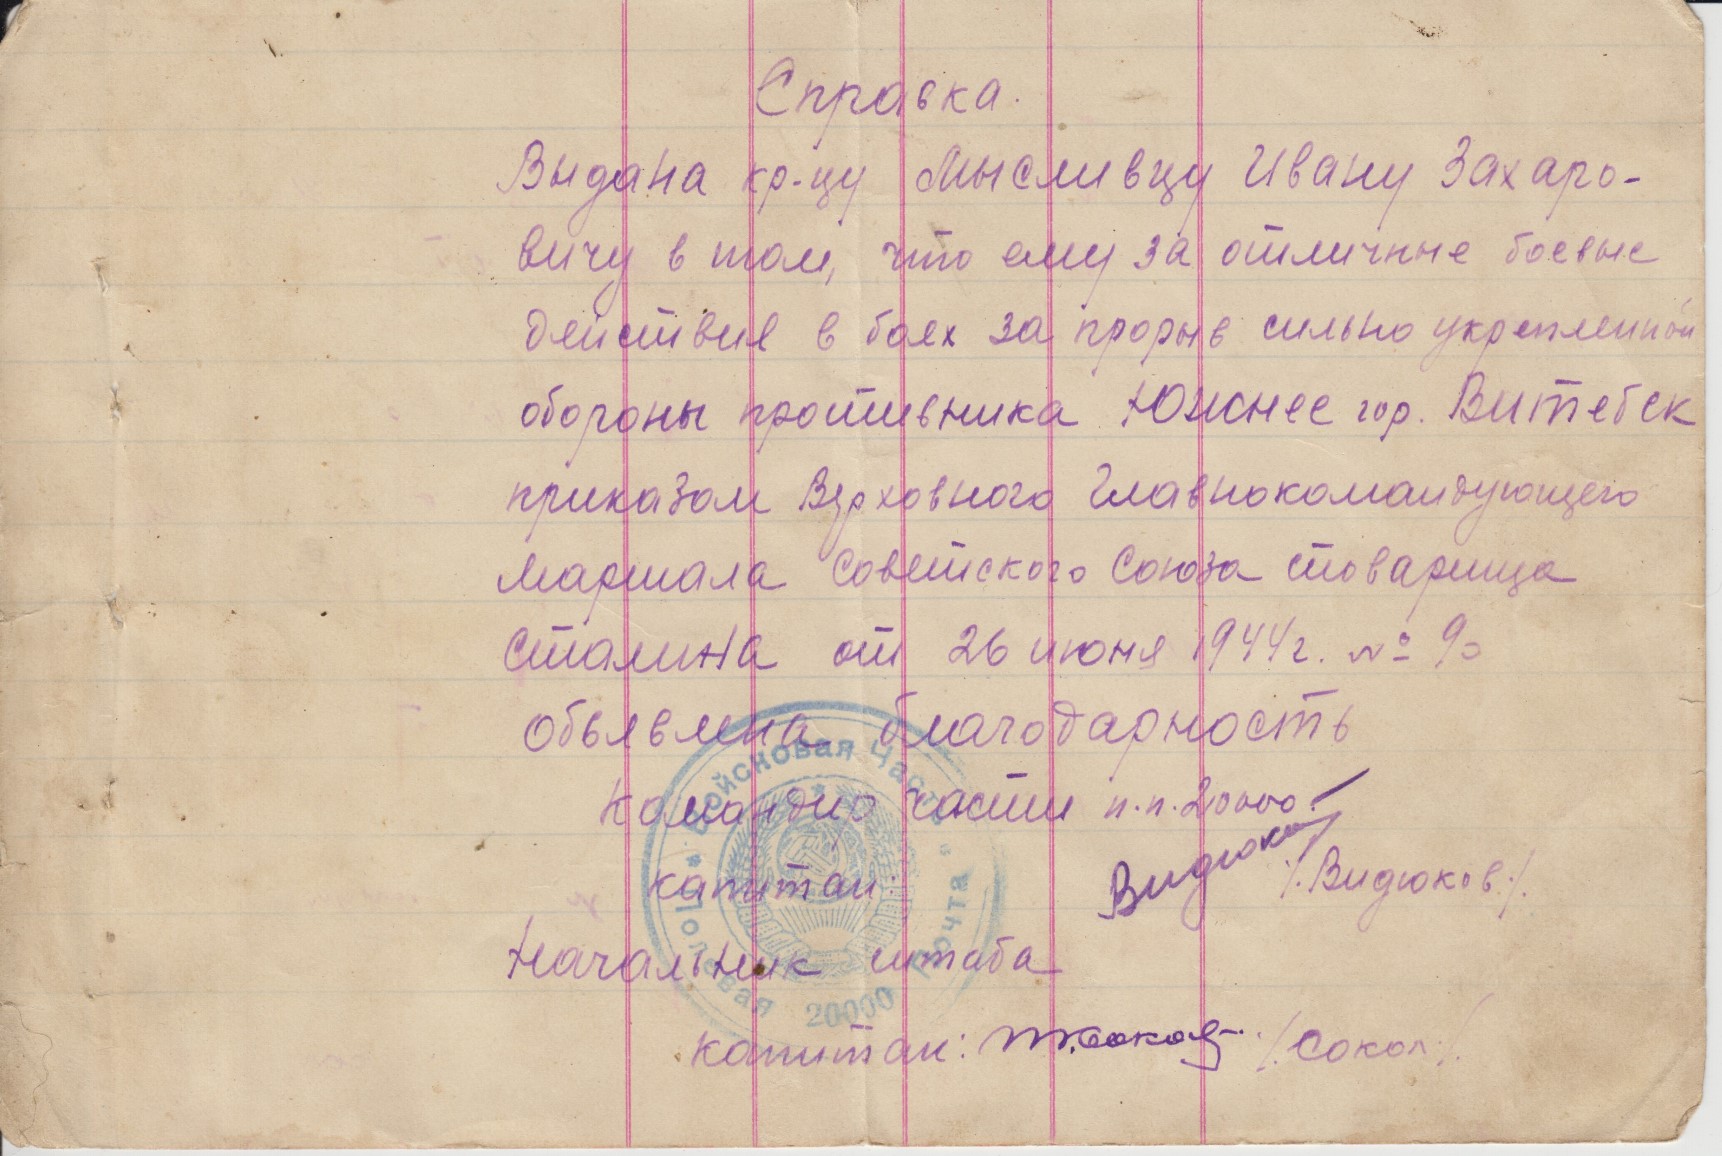 Справка.
Выдана кр-цу Мысливцу Ивану Захаро-
вичу в том, что ему за отличные боевые
действия в боях за прорыв сильно укрепленной
обороны противника Южнее гор. Витебск
приказом Верховного Главнокомандующего
Маршала Советского Союза товарища
Сталина от 26 июня 1944 г. №
Объявлена благодарность
Командир части п.п. 20000
капитан: Видюков /.Видюков./
Начальник штаба
капитан: /Сокол/
* Войсковая Часть * Полевая 20000 почта